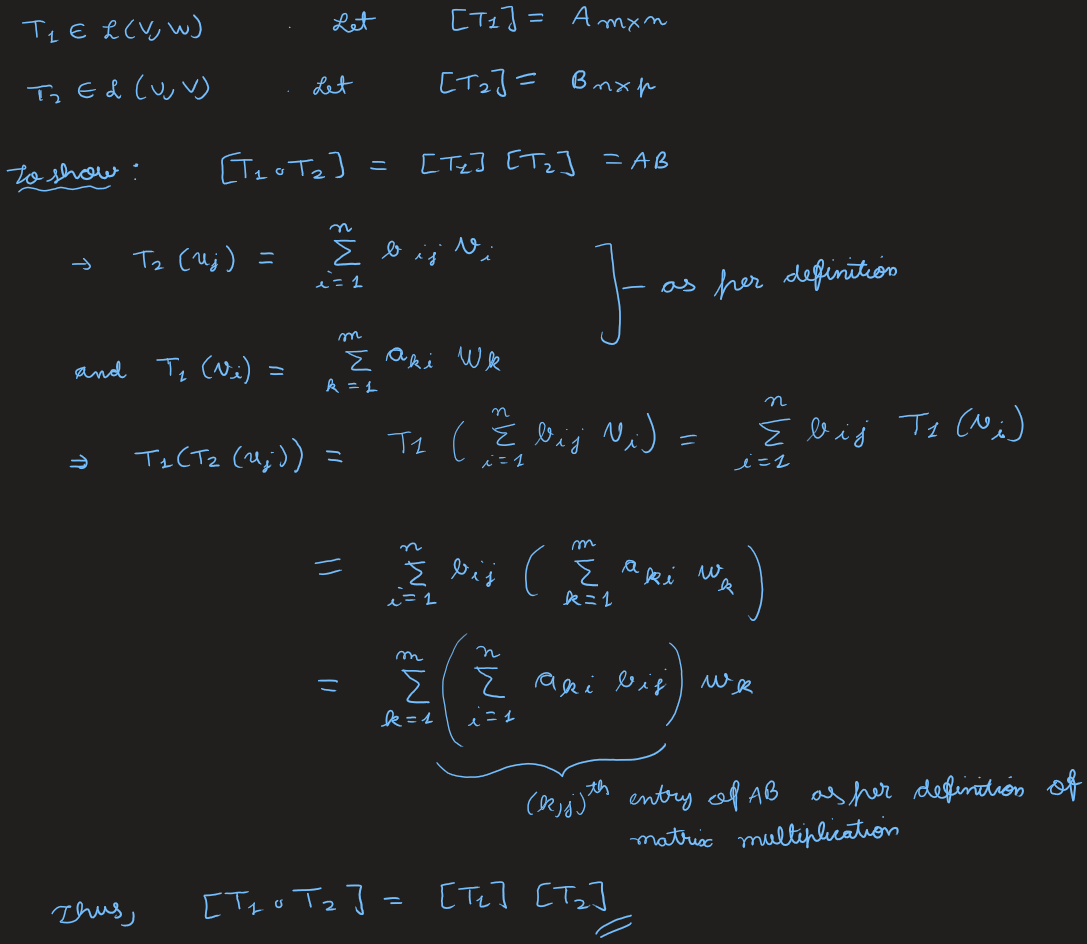 T₁ ∈ ℒ(V,W) . Let [T1] = A m×n
T₂ ∈ ℒ(U,V) . Let [T₂] = B n×p
To show : [T₁ ∘ T₂] = [T1] [T₂] = AB
→ T₂ (u_j) = ∑_{i=1}^{n} b_{ij} v_i
as per definition
and T₁ (v_i) = ∑_{k=1}^{m} a_{ki} w_k
⇒ T₁(T₂ (u_j)) = T1 ( ∑_{i=1}^{n} b_{ij} v_i ) = ∑_{i=1}^{n} b_{ij} T₁ (v_i)
= ∑_{i=1}^{n} b_{ij} ( ∑_{k=1}^{m} a_{ki} w_k )
= ∑_{k=1}^{m} ( ∑_{i=1}^{n} a_{ki} b_{ij} ) w_k
(k,j)^{th} entry of AB as per definition of
matrix multiplication
Thus, [T₁ ∘ T₂] = [T₁] [T₂]